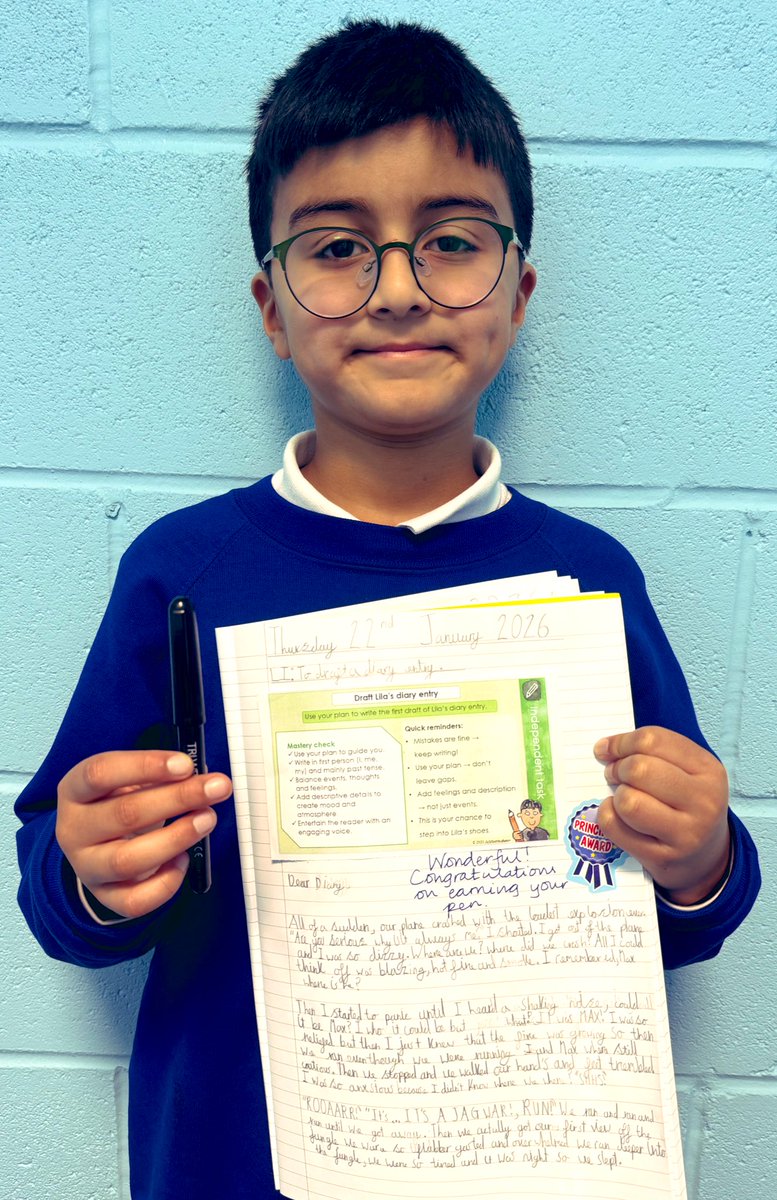 Thursday 22nd January 2026
LI: To draft a diary entry.
Draft Lila's diary entry
Use your plan to write the first draft of Lila's diary entry.
Mastery check
✓ Use your plan to guide you.
✓ Write in first person (I, me, my) and mainly past tense.
✓ Balance events, thoughts and feelings.
✓ Add descriptive details to create mood and atmosphere
✓ Entertain the reader with an engaging voice.
Quick reminders:
• Mistakes are fine → keep writing)
• Use your plan → don't leave gaps.
• Add feelings and description → not just events.
• This is your chance to step into Lila's shoes.
Independent Task
Wonderful!
Congratulations
on earning your
pen.
AWARD
TRI
Dear Diary,
All of a sudden, our plane crashed with the loudest explosion ever.
"Are you serious why is it always me" I . I got out of the plane
and I was so dizzy. Where are we? where did we crash? All I could
think off was blazing, hot fire and smoke. I remembered, Max
where is he?
Then I started to panic until I heard a shaking noise, could
it be Max? Who it could be but what? IT was MAX! I was so
relieved but then I just knew that the fire was growing so then
we ran eventhough we were running I and Max when still
cautious. Then we stopped and we walked our hand's and feet trembled
I was so because I didn't know where we where!
"ROOAARR!" "It's... IT'S A JAGWAR!, RUN!" We ran and ran and
ran until we got away. Then we got our first view off the
jungle we were so flabber gasted and over whelmed we ran deeper into
the jungle, we were so tired and it was night so we slept.